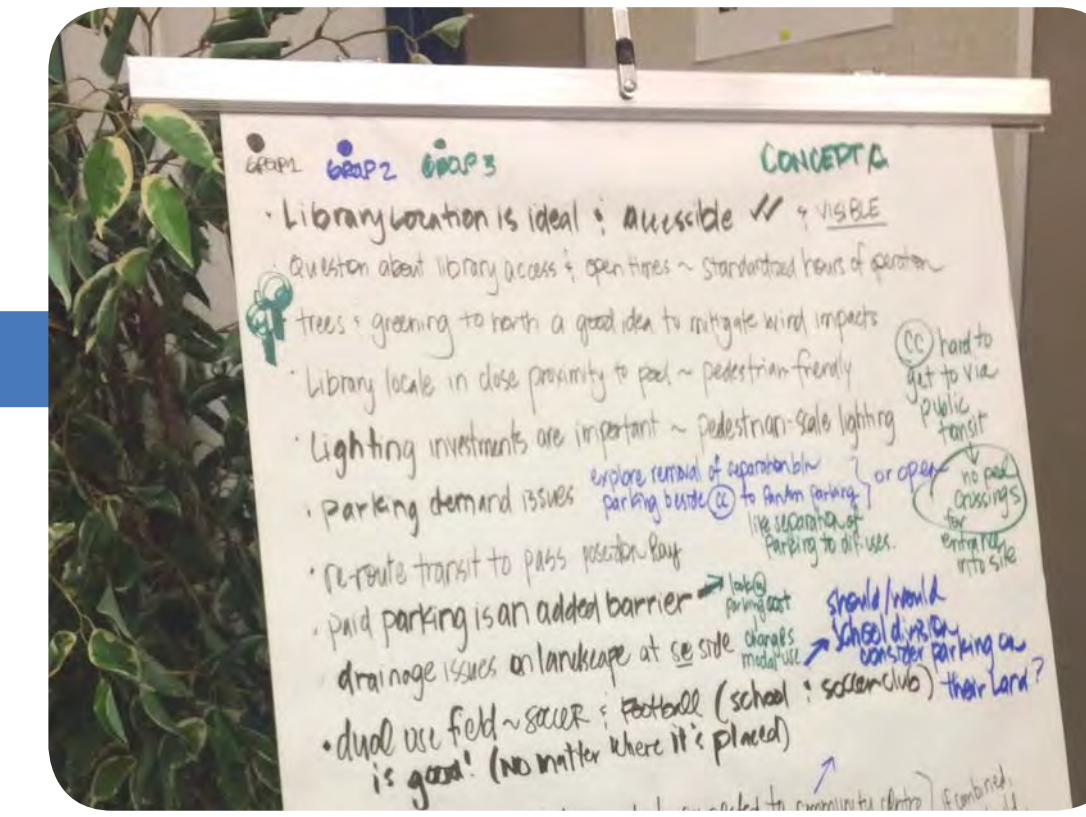 GROUP 1 GROUP 2 GROUP 3 CONCEPT A
· Library Location is ideal & accessible ✓✓ & VISIBLE
· Question about library access & open times ~ standardized hours of operation
· trees & greening to north a good idea to mitigate wind impacts
· Library locale in close proximity to pool ~ pedestrian friendly
· Lighting investments are important ~ pedestrian-scale lighting
· parking demand issues
explore removal of separation btw
parking beside (CC) to PanAm parking } or open
like separation of
parking to dif. uses.
(CC) hard to
get to via
public
transit
no ped
crossings
for
entrance
into site
· re-route transit to pass poseidon Bay
· paid parking is an added barrier → look @
parking cost
changes
modal use
· drainage issues on landscape at se side
should/would
school division
consider parking on
their land?
· dual use field ~ soccer & Football (school & soccer club)
is good! (no matter where it's placed)
connected to community centre } if combined,